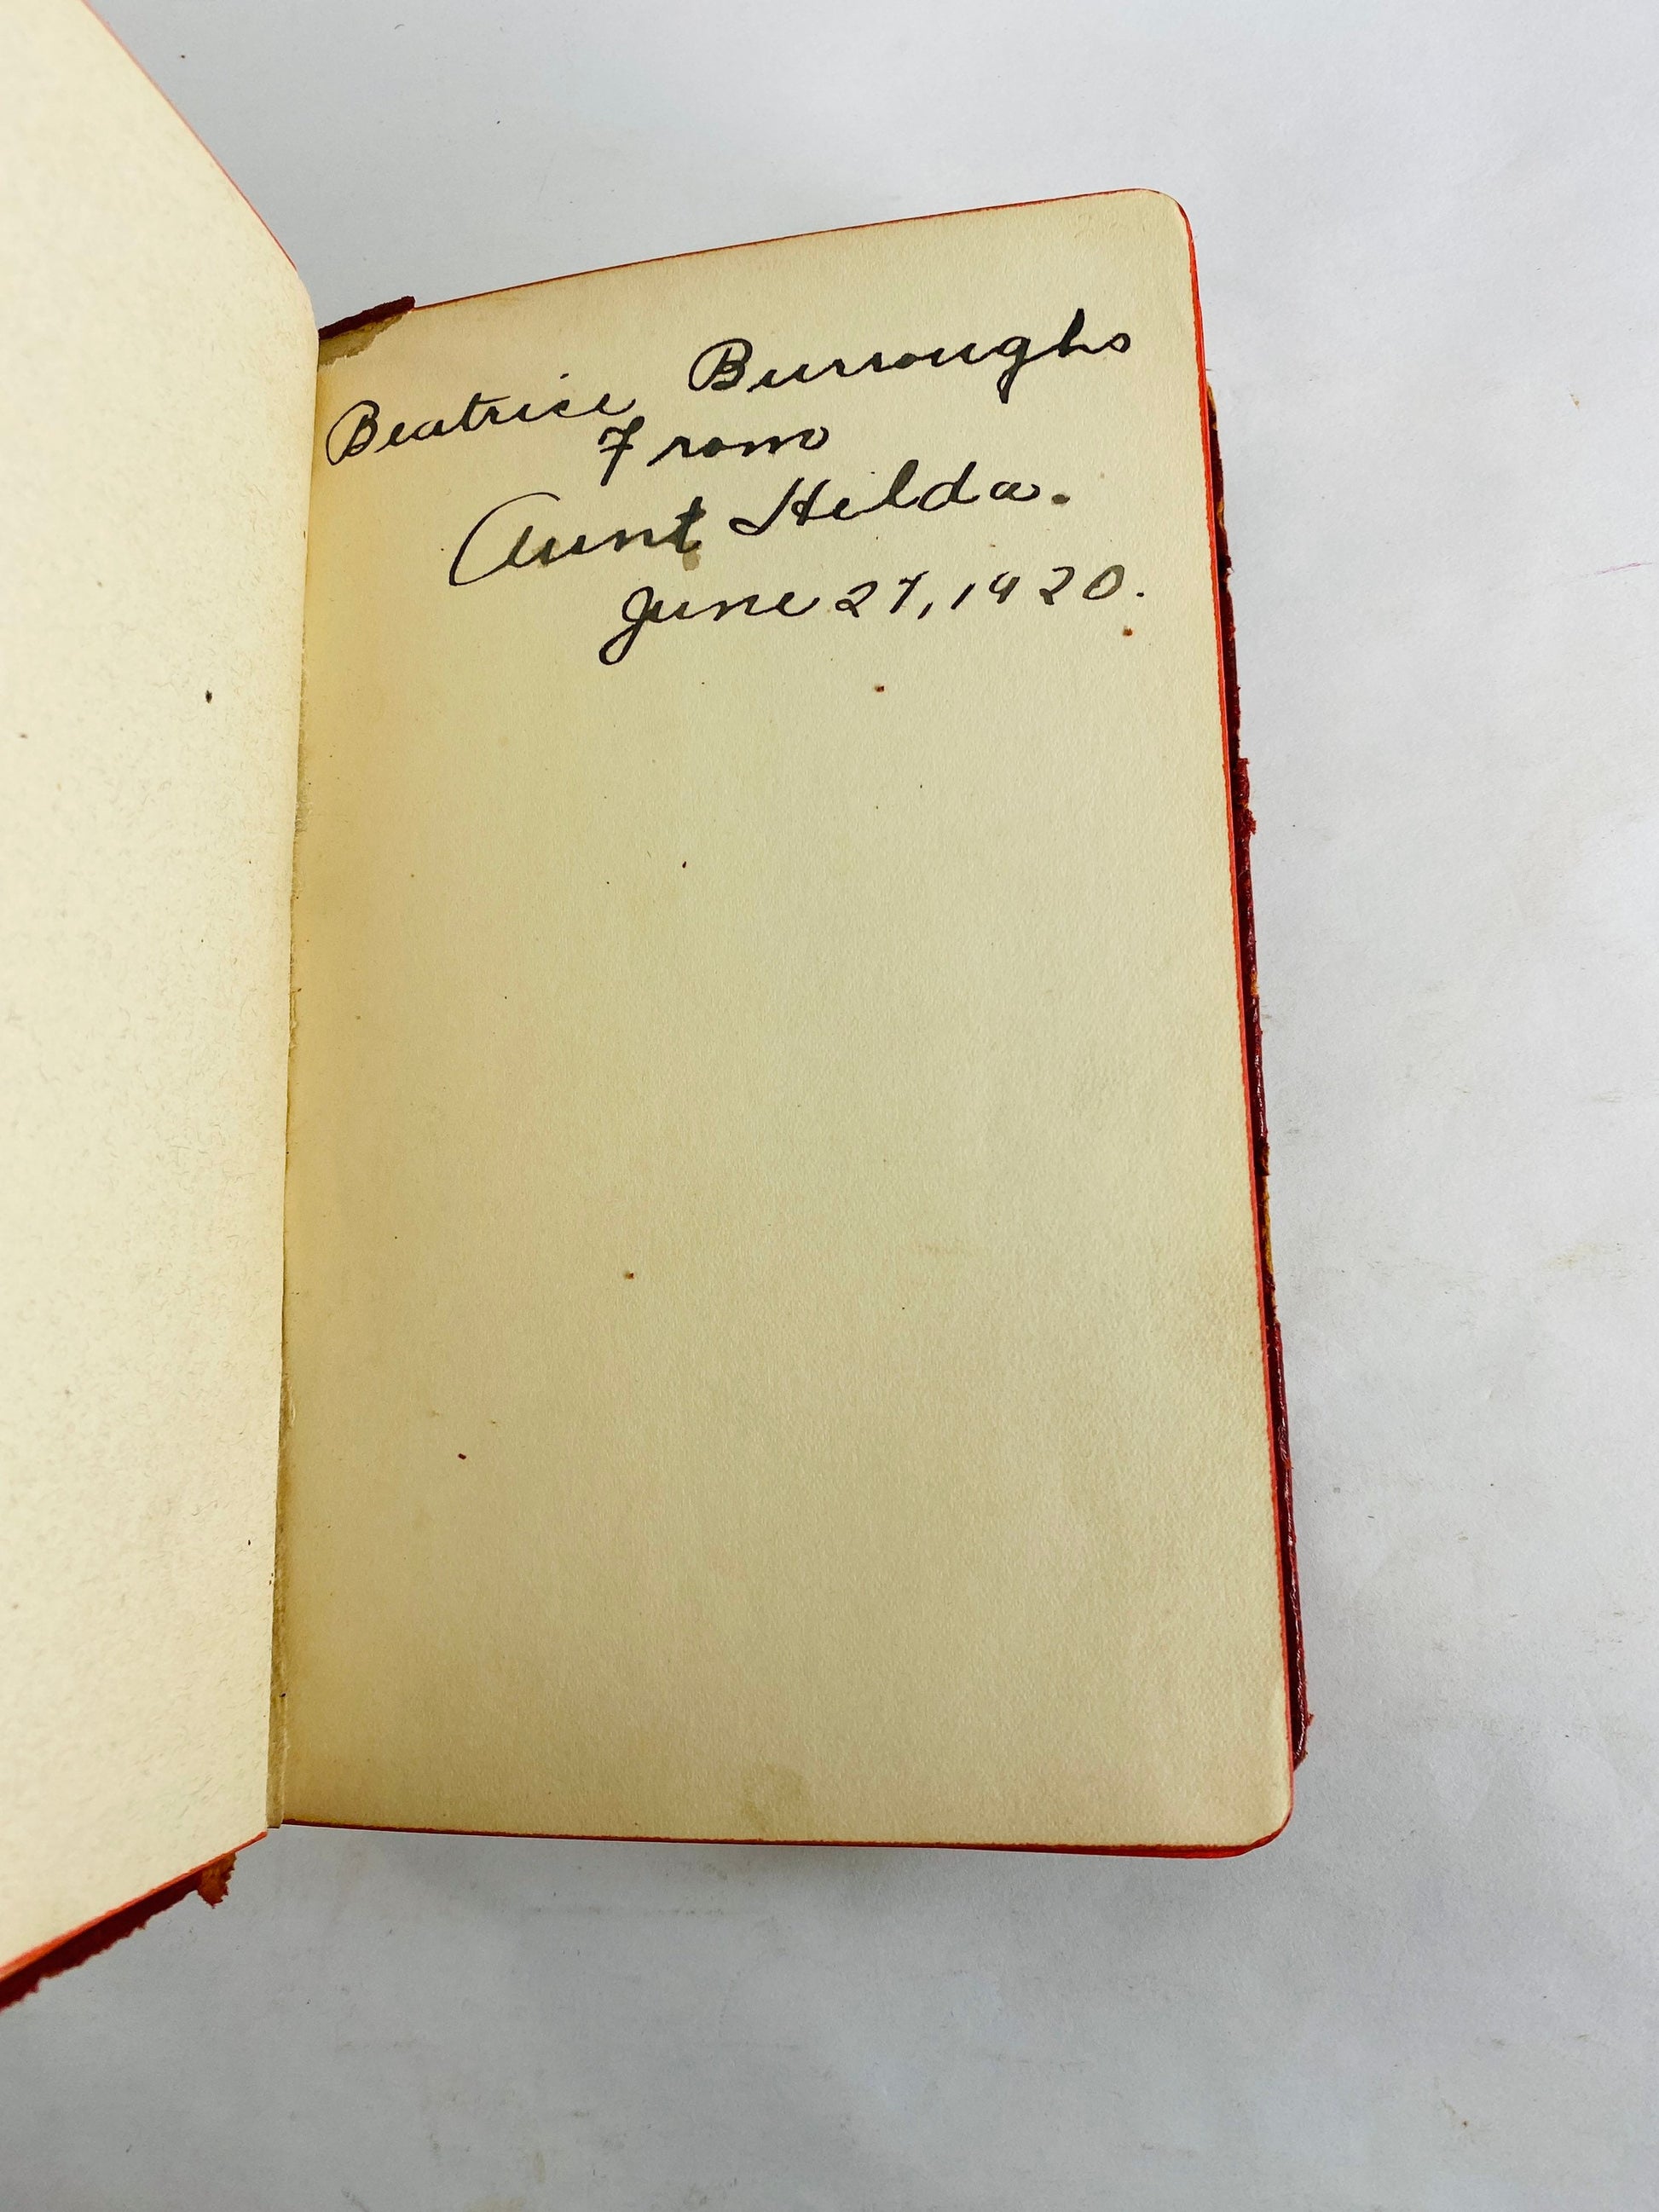 Beatrice Burroughs
From
Aunt Hilda.
June 27, 1920.